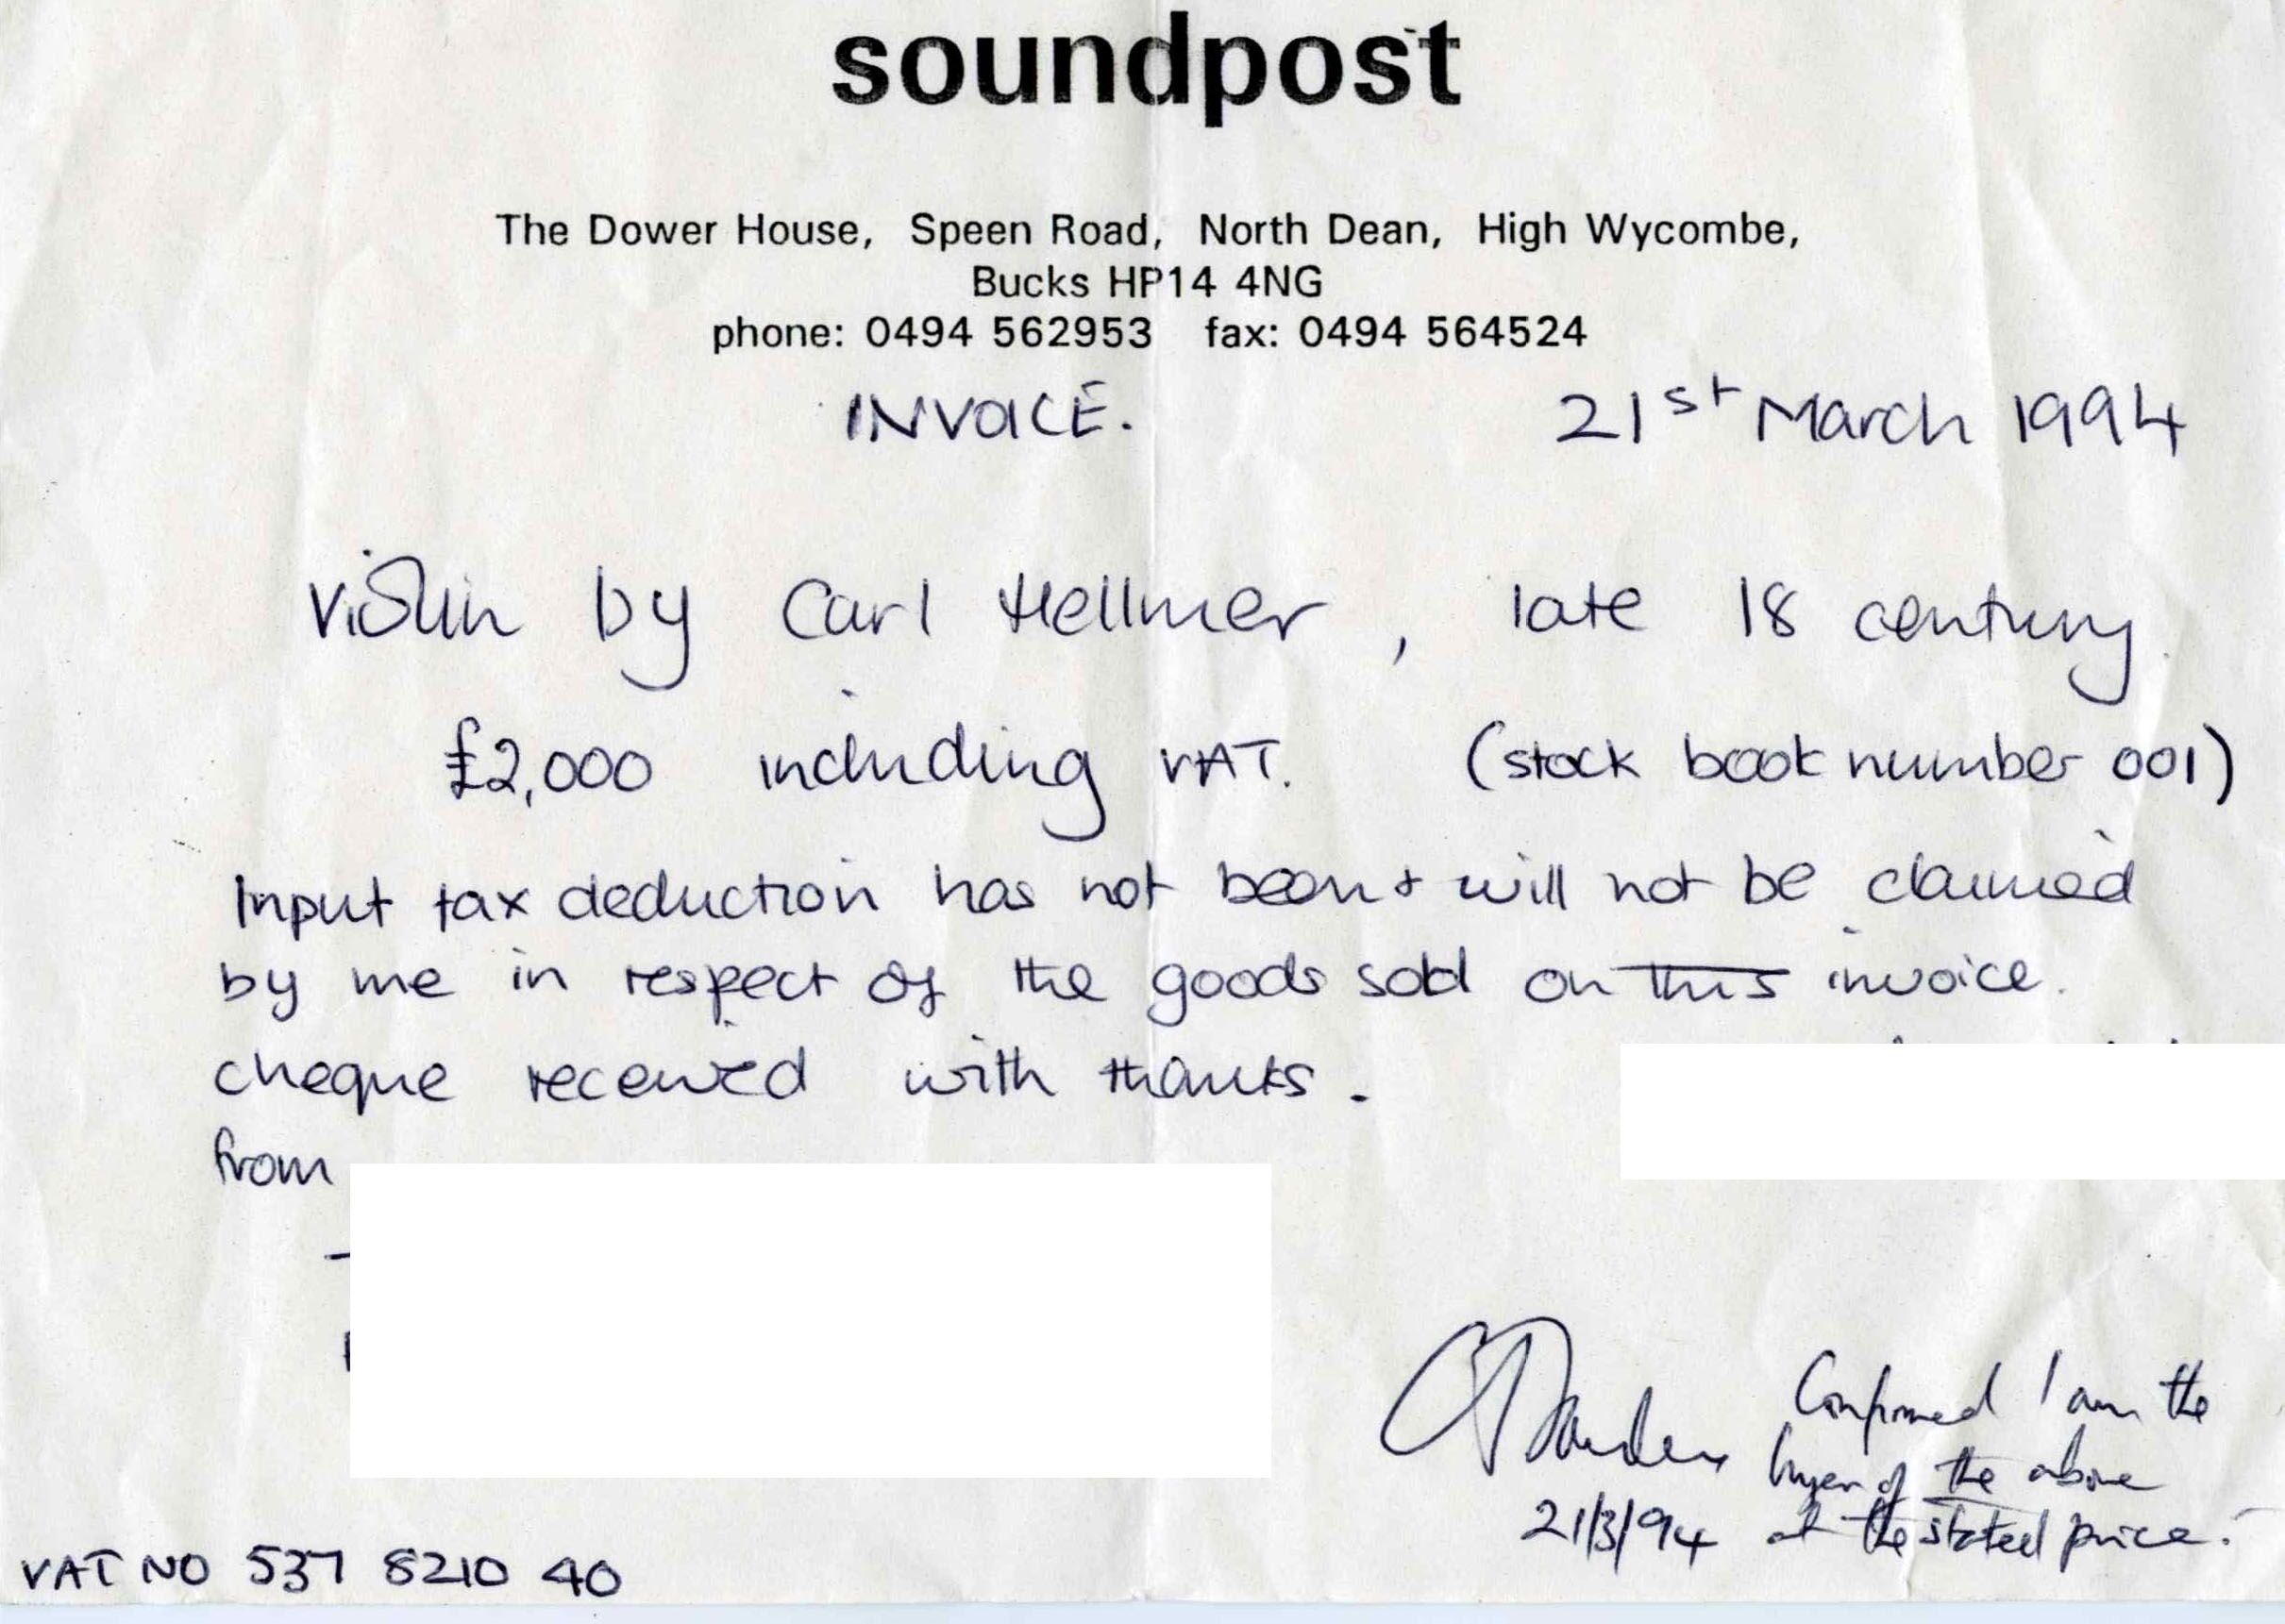 soundpost
The Dower House, Speen Road, North Dean, High Wycombe,
Bucks HP14 4NG
phone: 0494 562953 fax: 0494 564524
INVOICE. 21st March 1994
Violin by Carl Hellmer, late 18 century.
£2,000 including VAT. (stock book number 001)
Input tax deduction has not been + will not be claimed
by me in respect of the goods sold on this invoice.
cheque received with thanks.
from
Confirmed I am the
buyer of the above
21/3/94 at the stated price.
VAT NO 537 8210 40